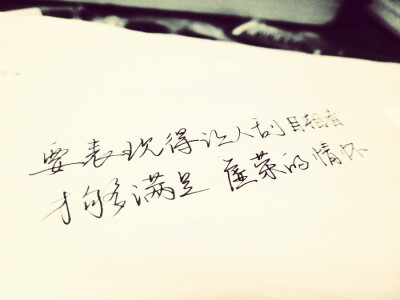 要表现得让人刮目相看
才能够满足虚荣的情怀